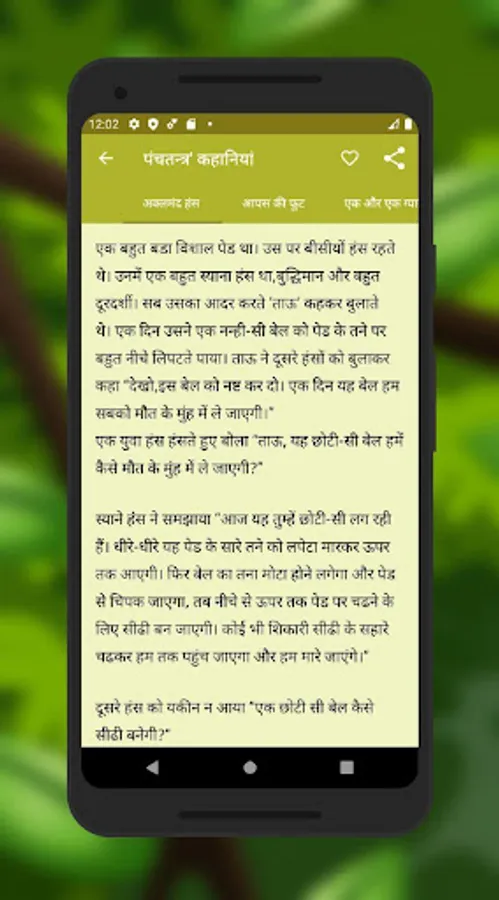 12:02
पंचतन्त्र' कहानियां
अक्लमंद हंस
आपस की फूट
एक और एक ग्या
एक बहुत बडा विशाल पेड था। उस पर बीसीयों हंस रहते
थे। उनमें एक बहुत स्याना हंस था,बुद्धिमान और बहुत
दूरदर्शी। सब उसका आदर करते 'ताऊ' कहकर बुलाते
थे। एक दिन उसने एक नन्ही-सी बेल को पेड के तने पर
बहुत नीचे लिपटते पाया। ताऊ ने दूसरे हंसों को बुलाकर
कहा "देखो,इस बेल को नष्ट कर दो। एक दिन यह बेल हम
सबको मौत के मुंह में ले जाएगी।"
एक युवा हंस हंसते हुए बोला "ताऊ, यह छोटी-सी बेल हमें
कैसे मौत के मुंह में ले जाएगी?"
स्याने हंस ने समझाया "आज यह तुम्हें छोटी-सी लग रही
हैं। धीरे-धीरे यह पेड के सारे तने को लपेटा मारकर ऊपर
तक आएगी। फिर बेल का तना मोटा होने लगेगा और पेड
से चिपक जाएगा, तब नीचे से ऊपर तक पेड पर चढने के
लिए सीढी बन जाएगी। कोई भी शिकारी सीढी के सहारे
चढकर हम तक पहुंच जाएगा और हम मारे जाएंगे।"
दूसरे हंस को यकीन न आया "एक छोटी सी बेल कैसे
सीढी बनेगी?"